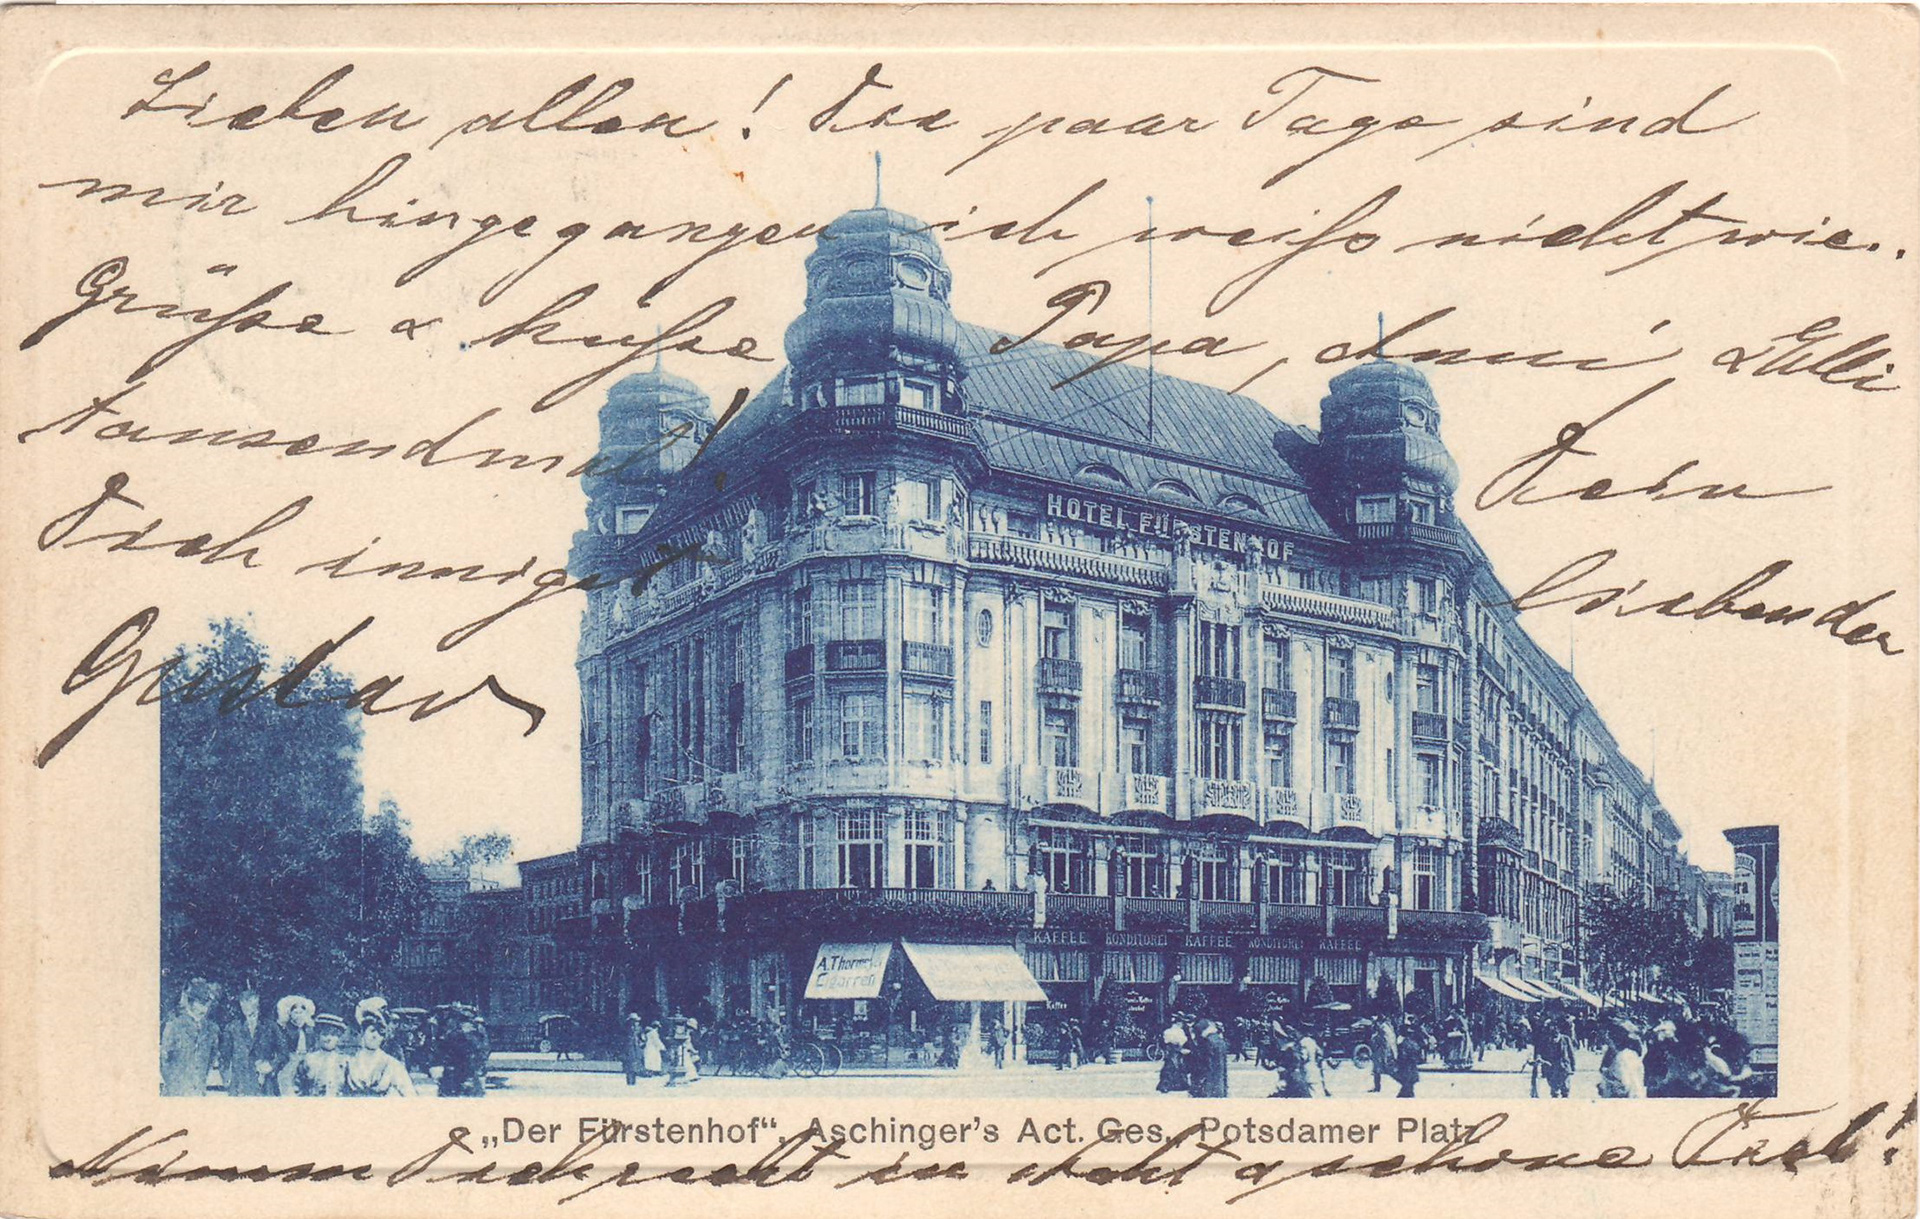 Lieben allen! Die paar Tage sind
mir hingegangen ich weiß nicht wie..
Grüße & küsse Papa, Anni & Elli
tausendmal!
Dein
Dich innigst
liebender
Gustav
HOTEL FÜRSTENHOF
KAFFEE KONDITOREI KAFFEE KONDITOREI KAFFEE
A. Thorme
Cigarren
Kaffee
„Der Fürstenhof“, Aschinger's Act. Ges., Potsdamer Platz
Nimm Dich recht in Acht schöne